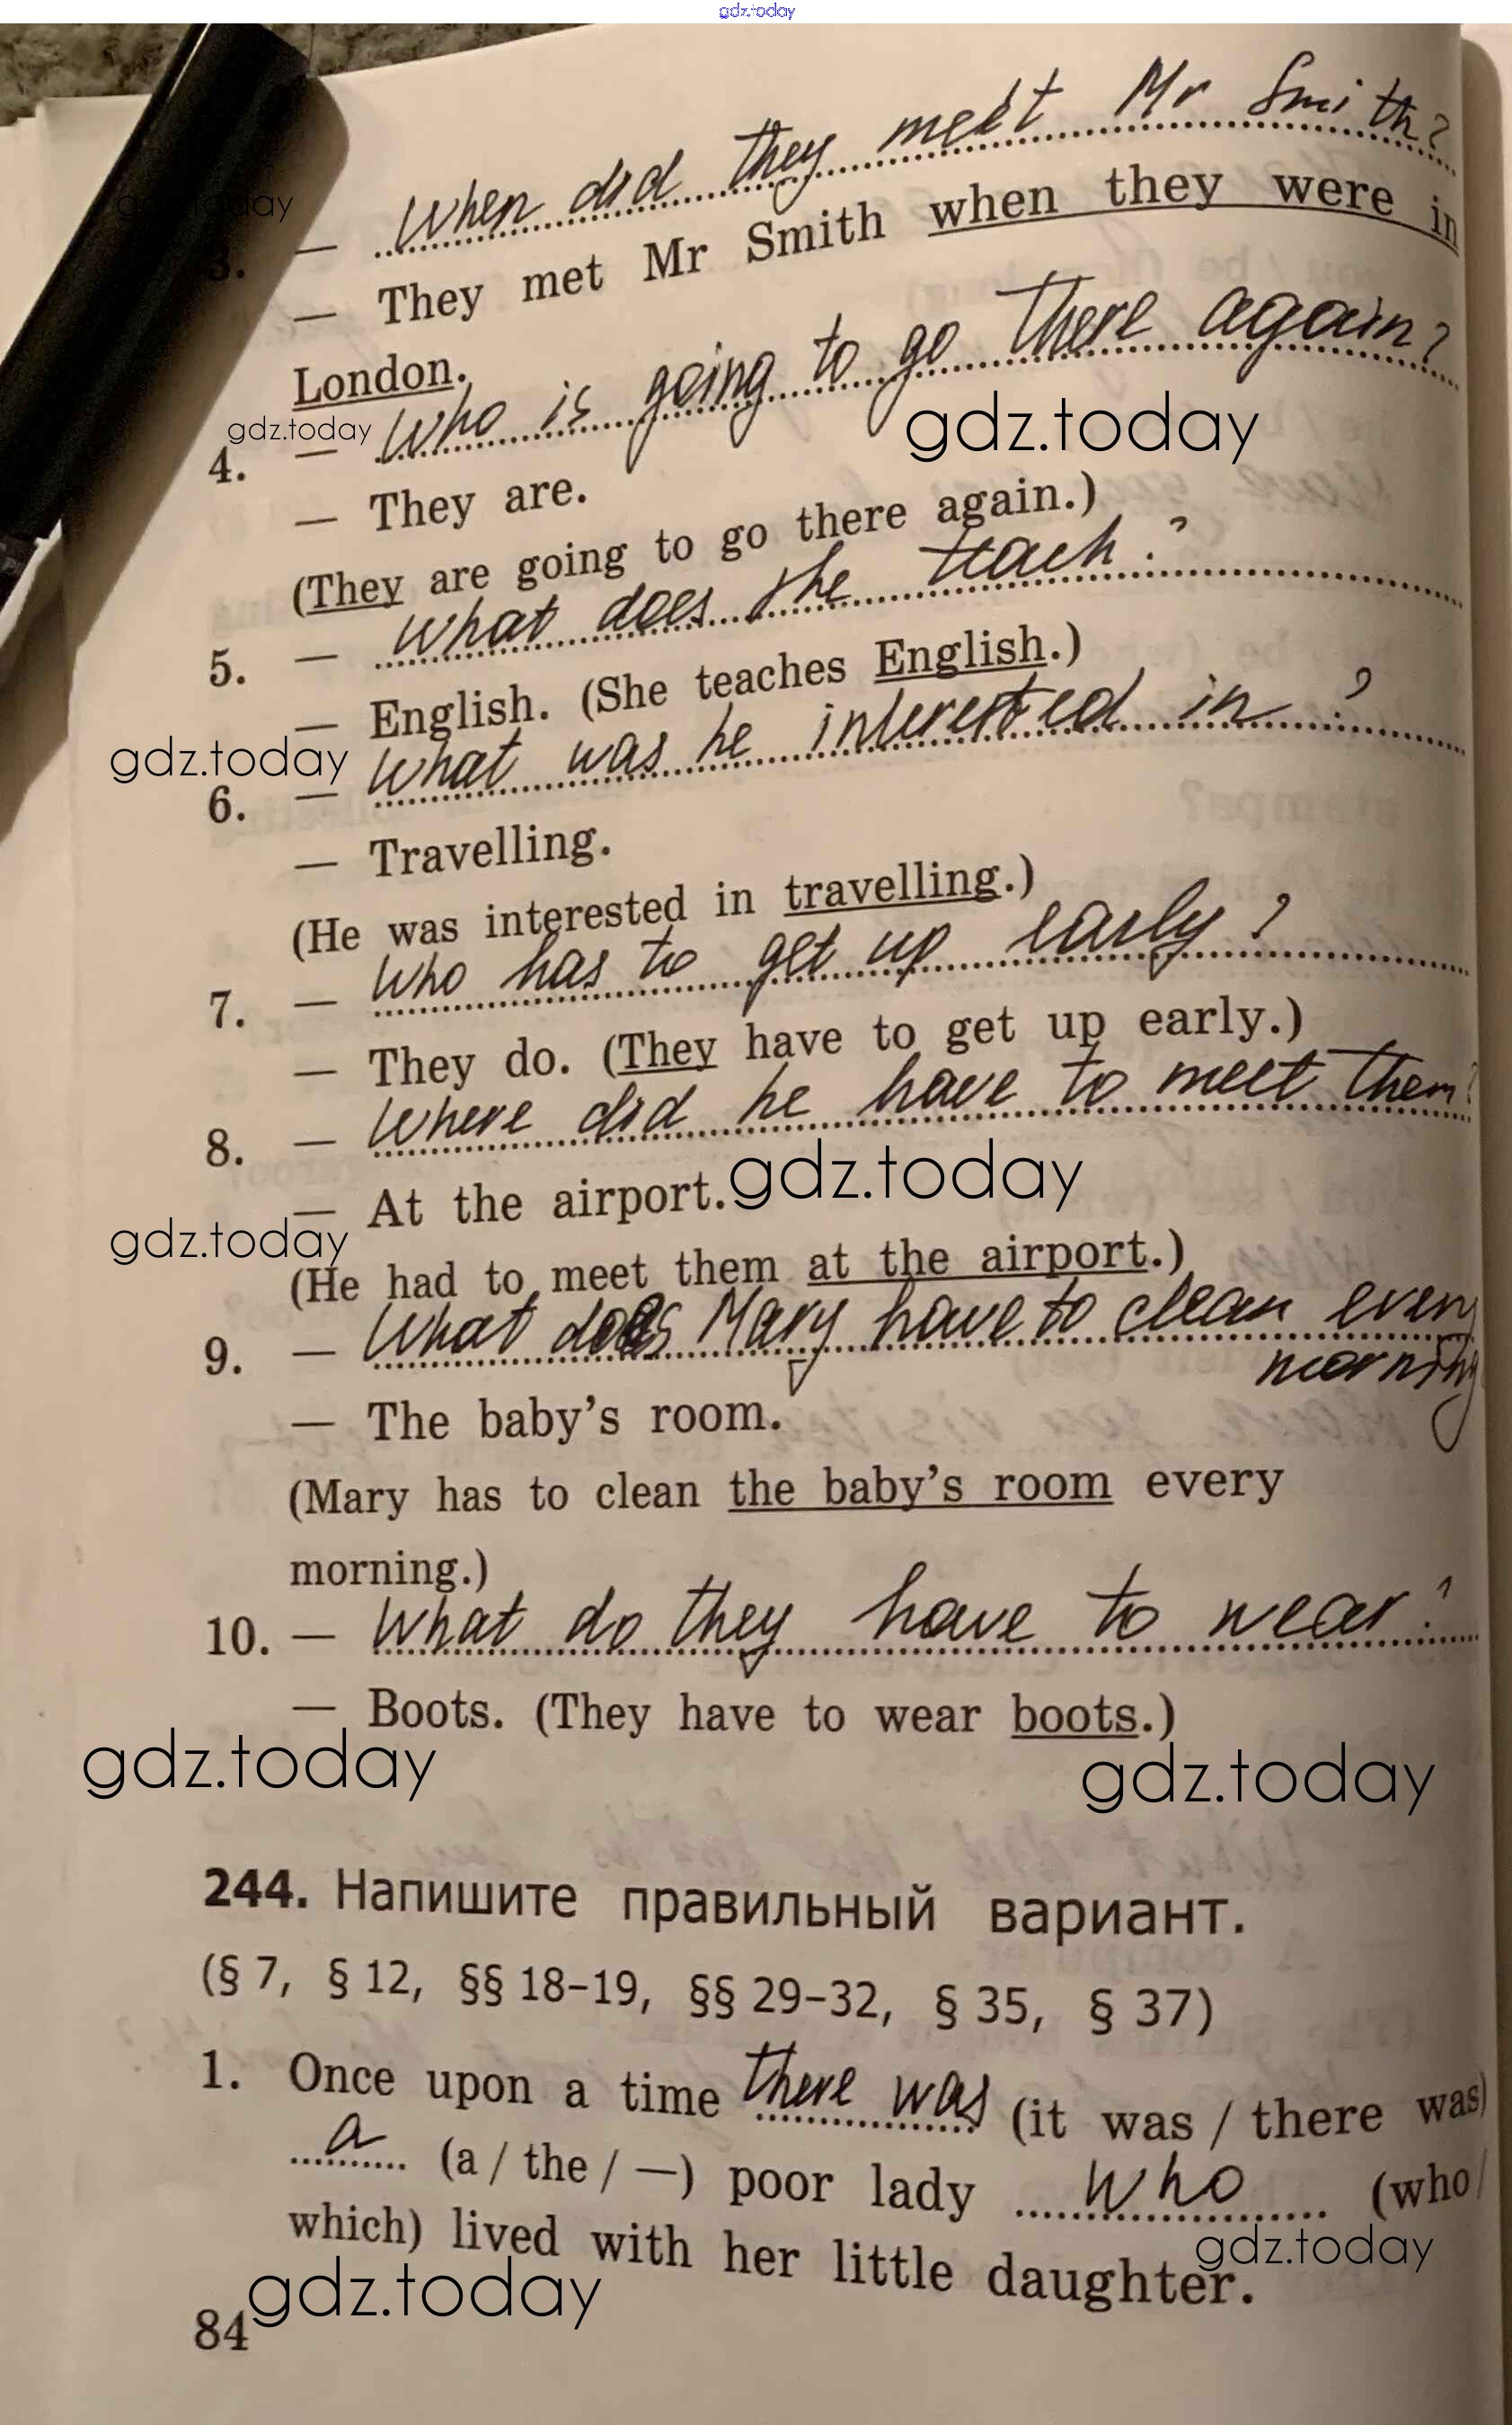 gdz.today
When did they meet Mr Smith?
gdz.today
3. —
— They met Mr Smith when they were in
London.
gdz.today
4. — Who is going to go there again?
gdz.today
— They are.
(They are going to go there again.)
5. — What does she teach?
— English. (She teaches English.)
gdz.today
6. — What was he interested in?
— Travelling.
(He was interested in travelling.)
7. — Who has to get up early?
— They do. (They have to get up early.)
8. — Where did he have to meet them?
— At the airport.
gdz.today
gdz.today
(He had to meet them at the airport.)
9. — What does Mary have to clean every
morning
— The baby's room.
(Mary has to clean the baby's room every
morning.)
10. — What do they have to wear?
— Boots. (They have to wear boots.)
gdz.today
gdz.today
244. Напишите правильный вариант.
(§ 7, § 12, §§ 18–19, §§ 29–32, § 35, § 37)
1. Once upon a time there was (it was / there was)
a (a / the / —) poor lady who (who /
which) lived with her little daughter.
gdz.today
gdz.today
84